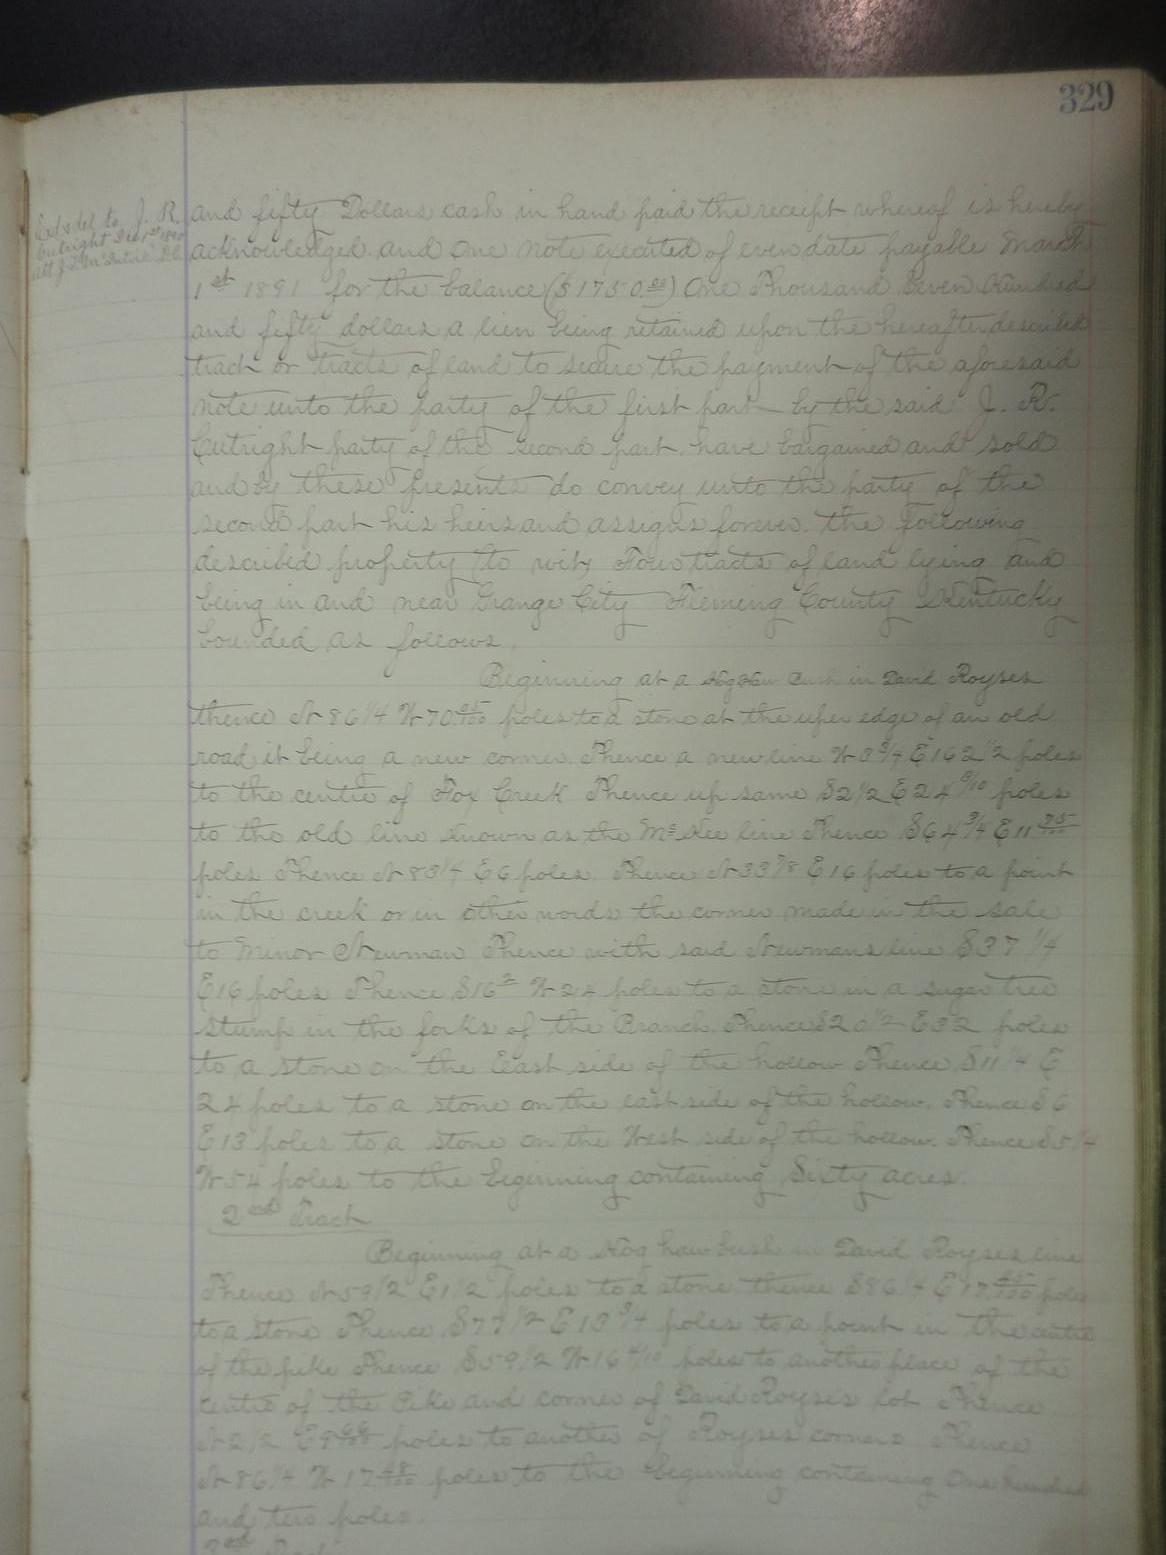 329
Exd & del to J. R.
Cutright Dec 1st 1890
att J. D. McIntire D.C.
and fifty Dollars cash in hand paid the receipt whereof is hereby
acknowledged and One note executed of even date payable March
1st 1891 for the balance ($1750.00) One Thousand Seven Hundred
and fifty dollars a lien being retained upon the hereafter described
track or tracts of land to secure the payment of the aforesaid
note unto the party of the first part by the said J. R.
Cutright party of the second part. have bargained and sold
and by these presents do convey unto the party of the
second part his heirs and assigns forever. the following
described property to wit, Four tracts of land lying and
being in and near Grange City Fleming County Kentucky
bounded as follows.
Beginning at a Hog Haw Bush in David Royses
thence N 86 1/4 W 70 poles to a stone at the uper edge of an old
road it being a new corner. Thence a new line N 3 3/4 E 162 1/2 poles
to the centre of Fox Creek Thence up same S 2 1/2 E 24 9/10 poles
to the old line known as the McKee line Thence S 64 3/4 E 11 75/100
poles Thence N 83 1/4 E 6 poles. Thence N 33 7/8 E 16 poles to a point
in the creek or in other words the corner made in the sale
to Minor Newman Thence with said Newmans line S 37 1/4
E 16 poles Thence S 16 W 24 poles to a stone in a sugar tree
stump in the forks of the Branch. Thence S 20 1/2 E 32 poles
to a stone on the East side of the hollow Thence S 11 1/4 E
24 poles to a stone on the east side of the hollow. Thence S 6
E 13 poles to a stone on the West side of the hollow. Thence S 5 1/4
W 54 poles to the beginning containing Sixty acres.
2nd Track
Beginning at a Hog haw bush in David Royses line
Thence N 5 9 1/2 E 1 1/2 poles to a stone thence S 86 1/4 E 17 poles
to a stone Thence S 77 1/2 E 13 3/4 poles to a point in the centre
of the pike Thence S 59 1/2 W 16 4/10 poles to another place of the
centre of the Pike and corner of David Royses lot Thence
N 2 1/2 E poles to another of Royses corners Thence
N 86 1/4 W 17 poles to the beginning containing One hundred
and two poles.